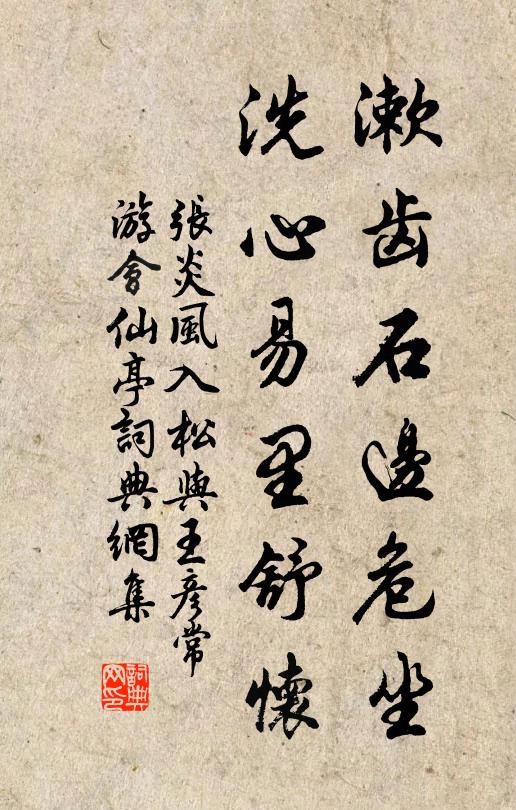 漱齿石邊危坐
洗心易里舒懷
張炎風入松與王彦常
游會仙亭詞典網集
詞典网印